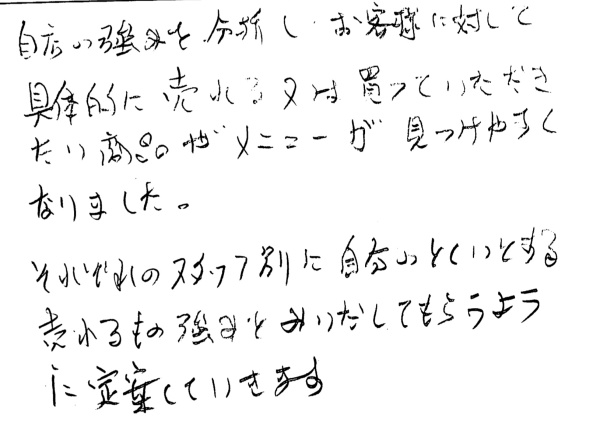 自店の強みを分析し、お客様に対して
具体的に売れる又は買っていただき
たい商品やメニューが見つけやすく
なりました。
それぞれのスタッフ別に自分のとくいとする
売れるもの強みをみいだしてもらうよう
に定案していきます